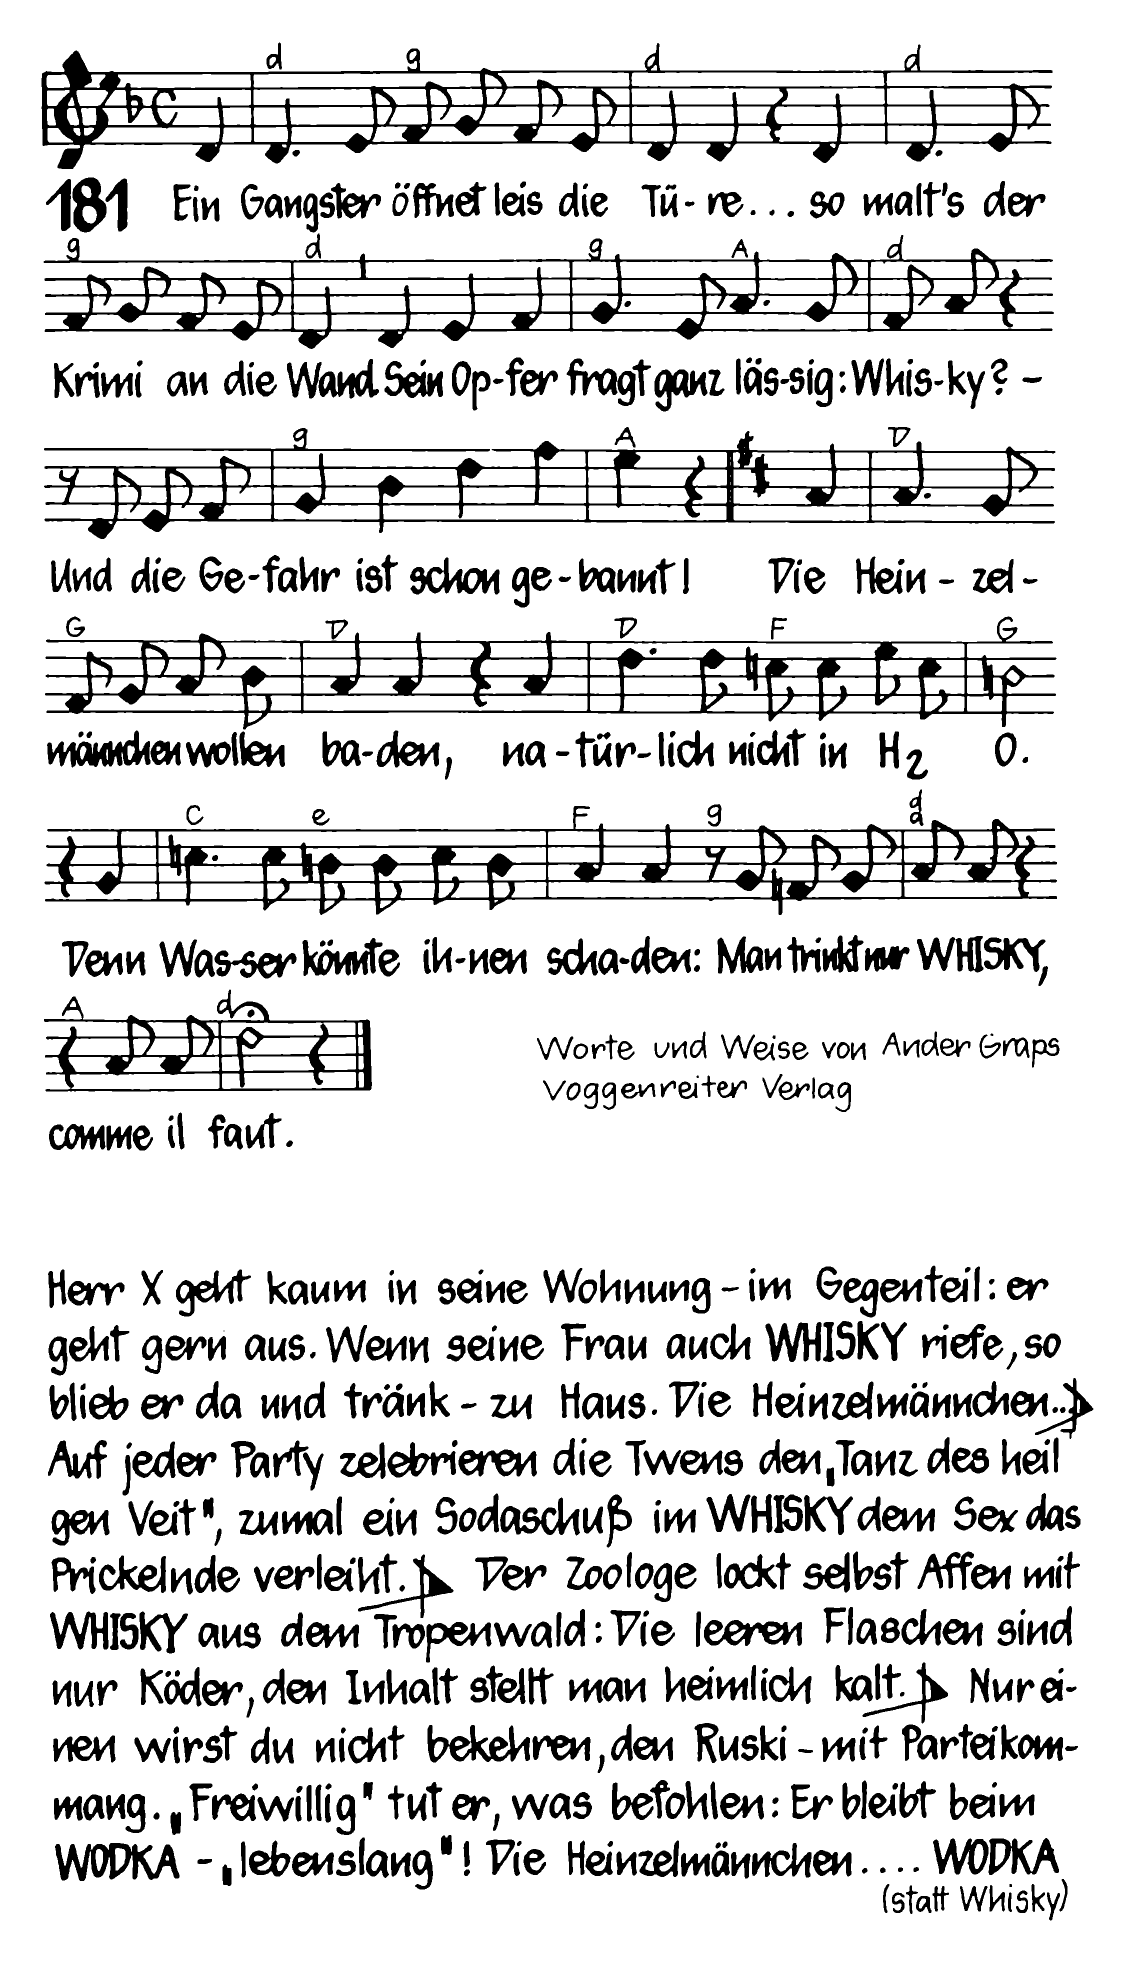 d g d d
181 Ein Gangster öffnet leis die Tü- re... so malt's der
g d g A d
Krimi an die Wand. Sein Op-fer fragt ganz läs-sig: Whis-ky? -
g A D
Und die Ge-fahr ist schon ge-bannt! Die Hein - zel-
G D D F G
männchen wollen ba-den, na-tür-lich nicht in H2 O.
C e F g d d
Denn Was-ser könnte ih-nen scha-den: Man trinkt nur WHISKY,
A d
Worte und Weise von Ander Graps
Voggenreiter Verlag
comme il faut.
Herr X geht kaum in seine Wohnung - im Gegenteil: er
geht gern aus. Wenn seine Frau auch WHISKY riefe, so
blieb er da und tränk - zu Haus. Die Heinzelmännchen...
Auf jeder Party zelebrieren die Twens den „Tanz des heil
gen Veit", zumal ein Sodaschuß im WHISKY dem Sex das
Prickelnde verleiht. Der Zoologe lockt selbst Affen mit
WHISKY aus dem Tropenwald: Die leeren Flaschen sind
nur Köder, den Inhalt stellt man heimlich kalt. Nur ei-
nen wirst du nicht bekehren, den Ruski - mit Parteikom-
mang. „Freiwillig" tut er, was befohlen: Er bleibt beim
WODKA - „lebenslang"! Die Heinzelmännchen.... WODKA
(statt Whisky)